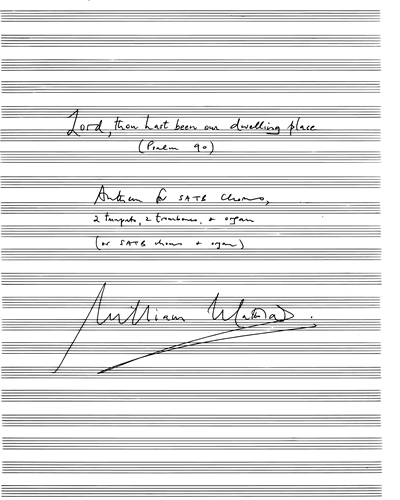 Lord, thou hast been our dwelling place
(Psalm 90)
Anthem for SATB chorus,
2 trumpets, 2 trombones, + organ
(or SATB chorus + organ)
William Mathias.